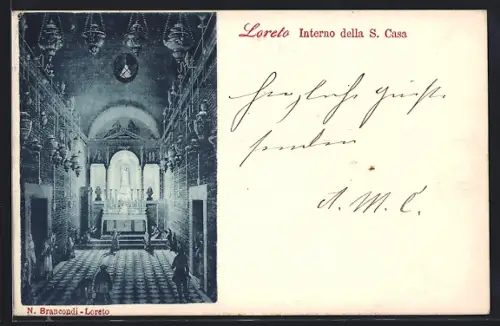 Loreto Interno della S. Casa
Herzliche Grüße
senden
A. M. C.
N. Brancondi - Loreto